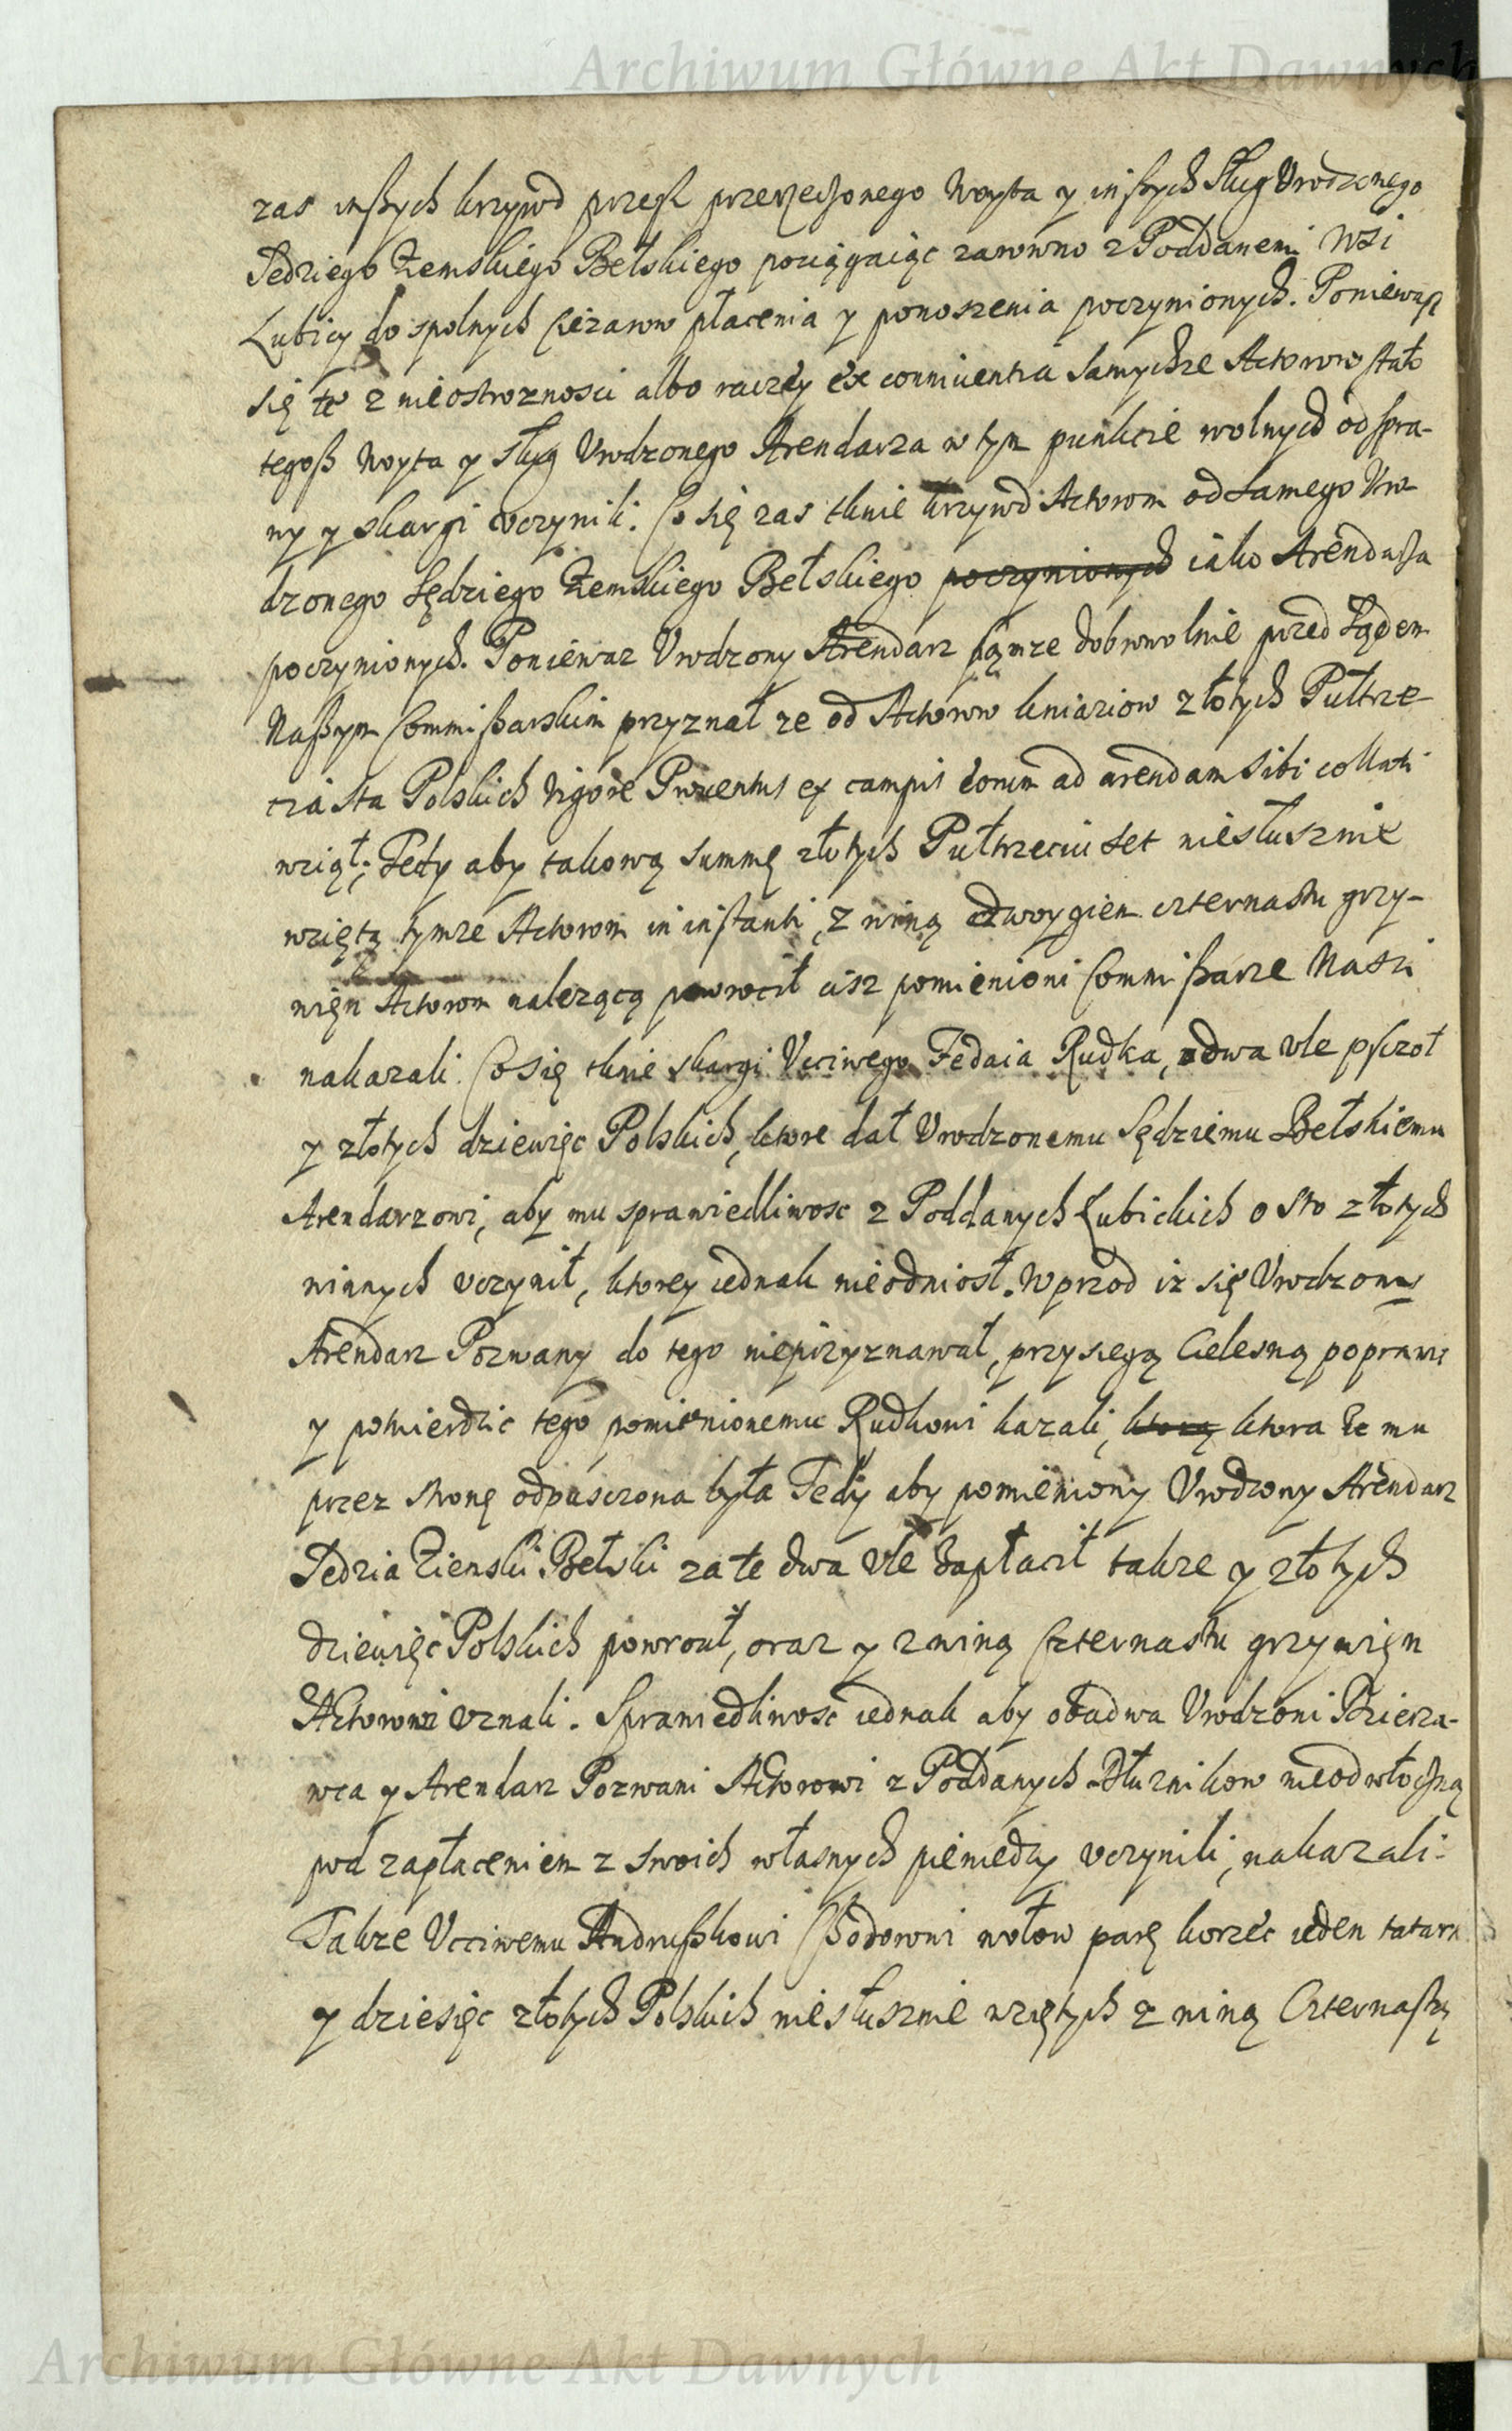 Archiwum Główne Akt Dawnych
zas inßych krzywd przesz przerzeczonego Woyta y inßych Sług Urodzonego
Sedziego Zemskiego Bełskiego pociągaiąc zarowno z Poddanemi Wsi
Łubicy do spolnych Cięzarow płacenia y ponoszenia poczynionych. Poniewasz
się to z nieostroznosci albo raczey ex conniventia samychze Actorow stało
tegoß Woyta y sług Urodzonego Arendarza w tym punkcie wolnych od spra-
wy y skargi uczynili. Co się zas tknie krzywd Actorom od samego Uro-
dzonego Sędziego Zemskiego Bełskiego poczynionych iako Arendarza
poczynionych. Poniewaz Urodzony Arendarz samze dobrowolnie przed Sądem
Naßym Commißarskim przyznał ze od Actorow kniaziow złotych Pułtrze-
cia sta Polskich vigore Proventus ex campis eorum ad arendam sibi collati
wziął; Tedy aby takową summę złotych Pułtrzeciu set niesłusznie
wziętą tymze Actorom in instanti, z winą dwoygiem czternastu grzy-
wien Actorom nalezącą powrocił cisz pomienioni Commißarze Nasi
nakazali. Co się tknie skargi Ucciwego Fedaia Rudka, o dwa ule pszczoł
y złotych dziewięc Polskich, ktore dał Urodzonemu Sędziemu Bełskiemu
Arendarzowi, aby mu sprawiedliwosc z Poddanych Łubickich o sto złotych
winnych uczynił, ktorey iednak nieodniosł. Wprzod iz się Urodzony
Arendarz Pozwany do tego nieprzyznawał, przysięgą Cielesną poprawi
y potwierdzic tego pomienionemu Rudkowi kazali, ktorą ktora ze mu
przez stronę odpusczona była Tedy aby pomieniony Urodzony Arendarz
Sedzia Ziemski Bełski za te dwa ule zapłacił takze y złotych
dziewięc Polskich powrocił, oraz y z winą czternastu grzywien
Actorowi uznali. Sprawiedliwosc iednak aby obadwa Urodzoni Dzierza-
wca y Arendarz Pozwani Actorowi z Poddanych Dłuznikow nieodwłoczną
pod zapłaceniem z swoich własnych pieniedzy uczynili, nakazali.
Takze Ucciwemu Andrußkowi wołow parę korzec ieden tatarki
y dziesięc złotych Polskich niesłusznie wziętych z winą Czternastą
Archiwum Główne Akt Dawnych